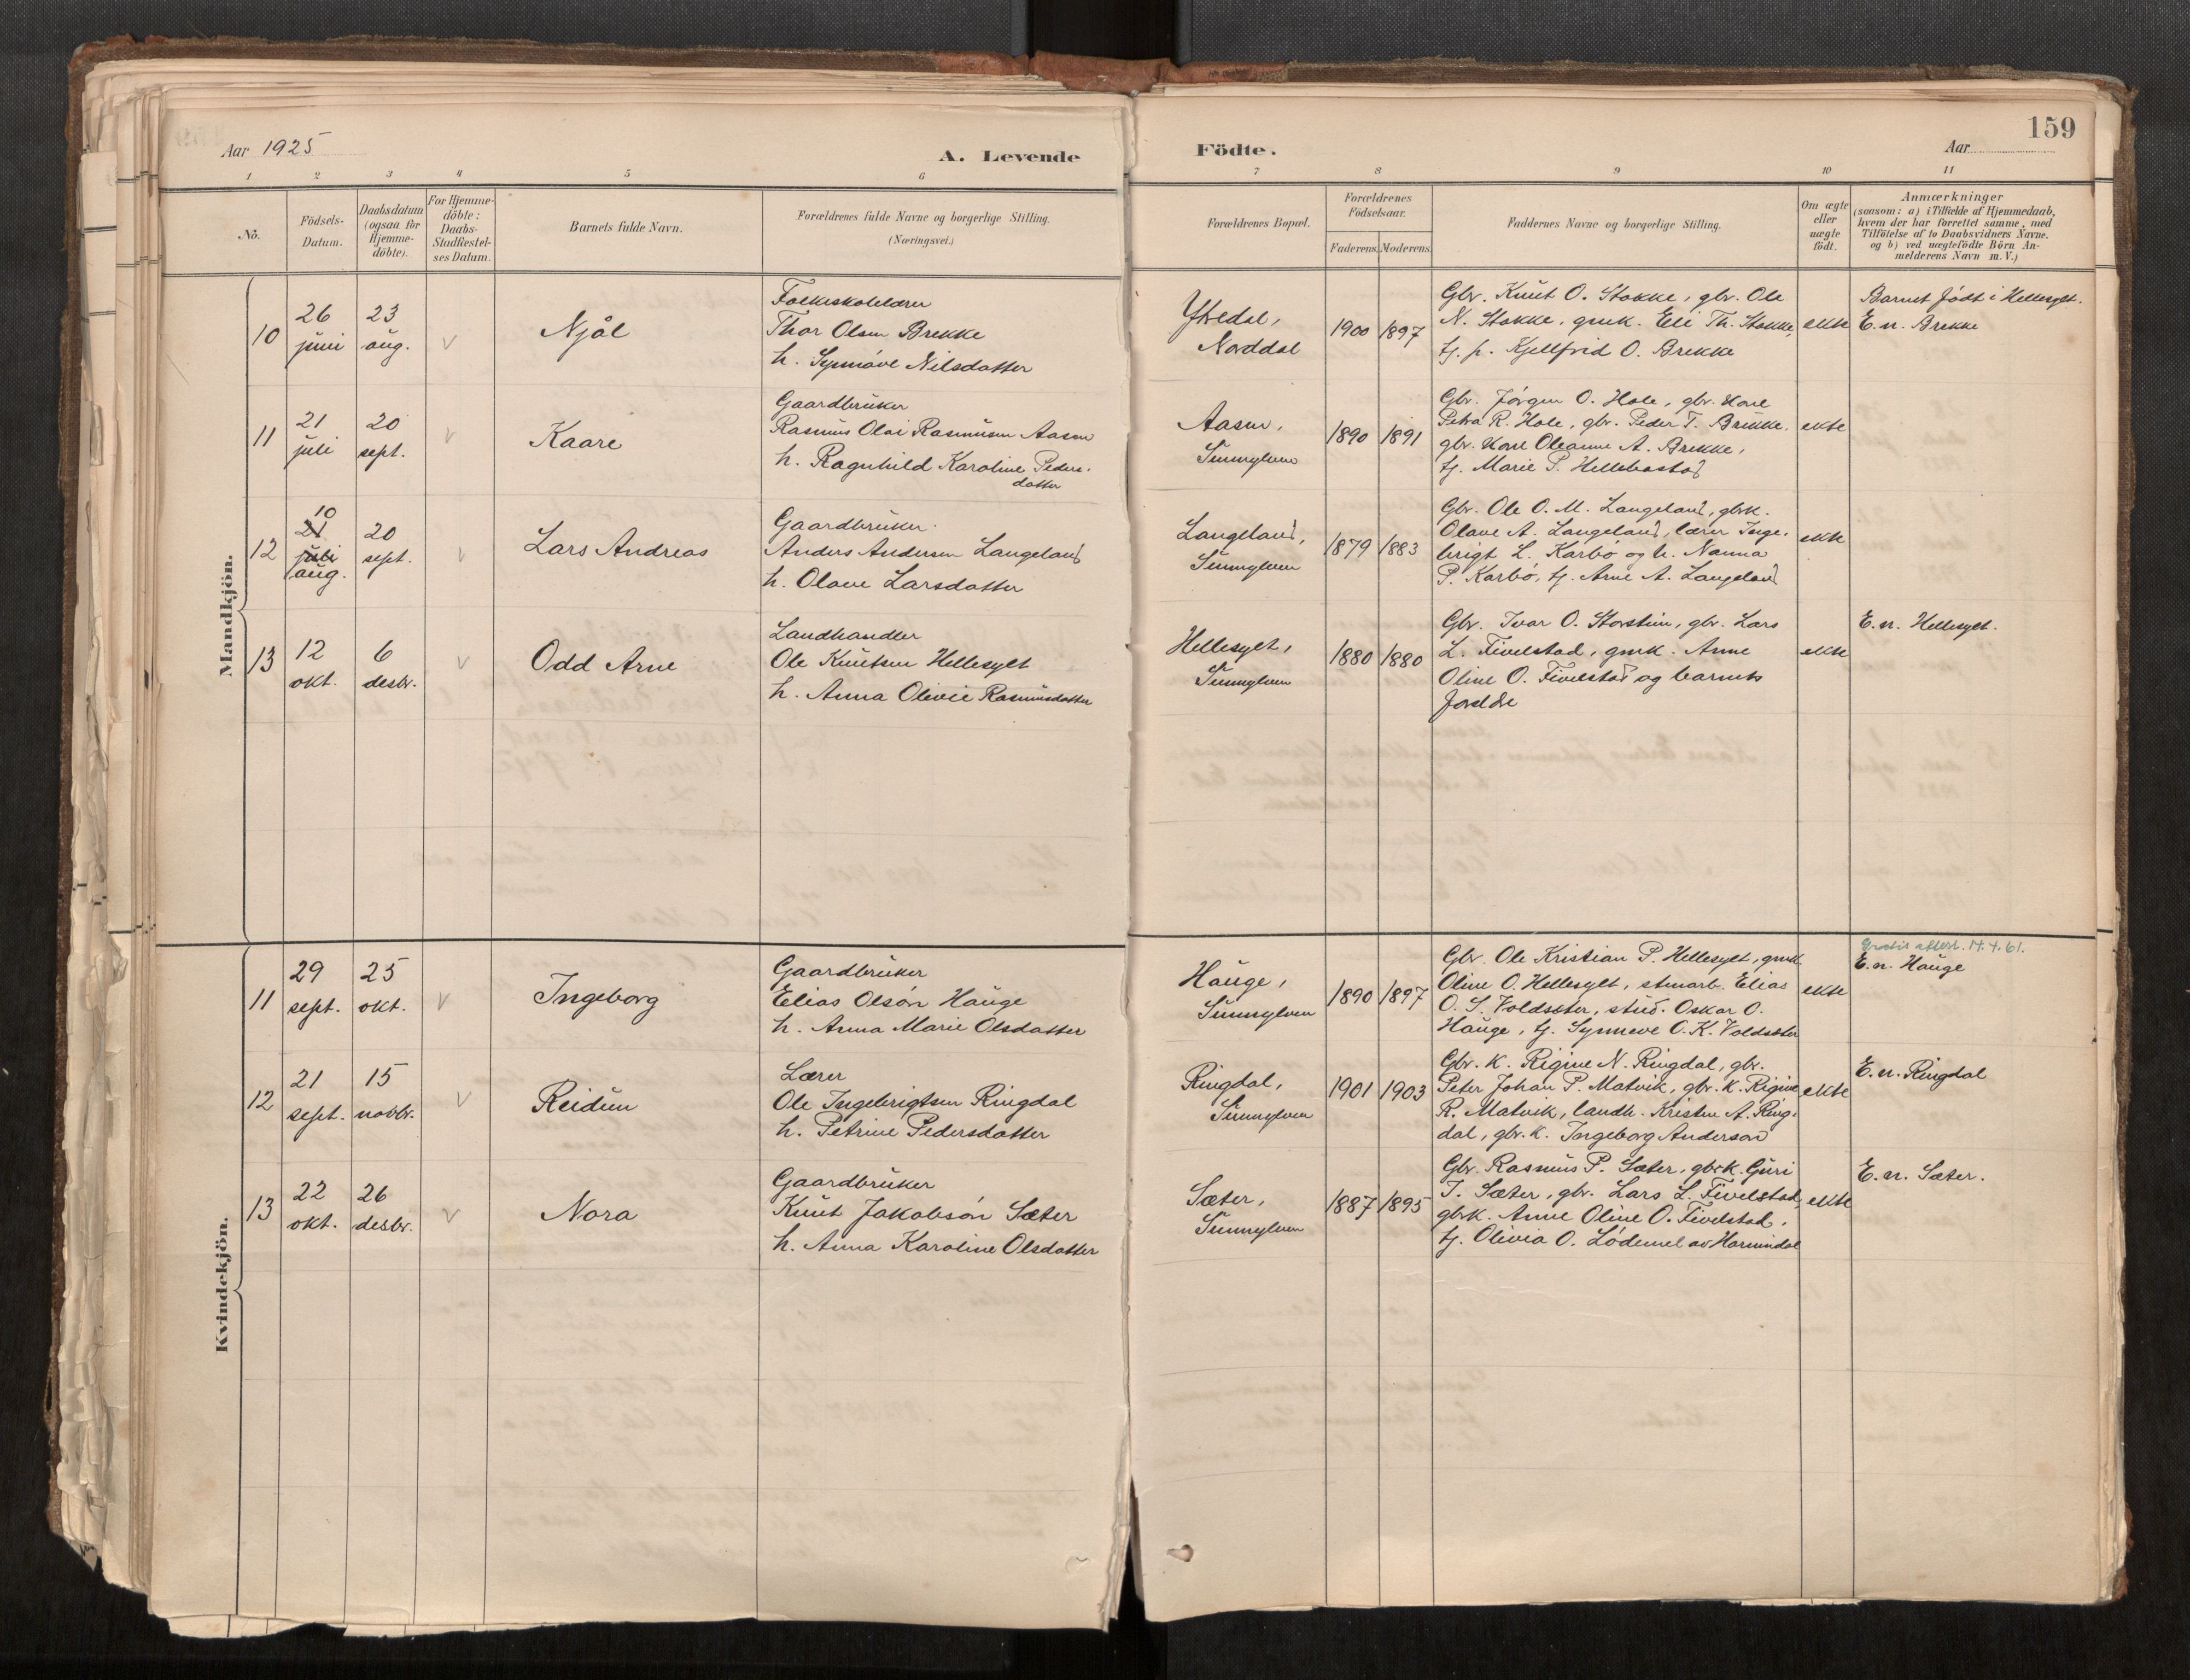 159
Aar 1925
A. Levende
Födte.
Aar
1 2 3 4 5 6 7 8 9 10 11
Nö.
Födsels-
Datum.
Daabsdatum
(ogsaa for
Hjemme-
döbte).
For Hjemme-
döbte:
Daabs-
Stadfæstel-
ses Datum.
Barnets fulde Navn.
Forældrenes fulde Navne og borgerlige Stilling.
(Næringsvei.)
Forældrenes Bopæl.
Forældrenes
Födselsaar.
Faderens. Moderens.
Faddernes Navne og borgerlige Stilling.
Om ægte
eller
uægte
födt.
Anmærkninger
(saasom: a) i Tilfælde af Hjemmedaab,
hvem der har forrettet samme, med
Tilföielse af to Daabsvidners Navne.
og b) ved uægtefödte Börn An-
melderens Navn m. V.)
Mandkjön.
10
26
juni
23
aug.
v
Njål
Folkeskolelærer
Thor Olsen Brekke
h. Synnøve Nilsdatter
Norddal
1900 1897
Gbr. Knut O. Stokke, gbr. Ole
N. Stokke, gmk. Eli Th. Stokke,
tj. p. Kjellfrid O. Brekke
ekte
Barnet født i Hellesylt.
E. n. Brekke
11
21
juli
20
sept.
v
Kaare
Gaardbruker
Rasmus Olai Rasmusen Aasen
h. Ragnhild Karoline Peders.
datter
Aasen,
Sunnylven
1890 1891
Gbr. Jørgen O. Hole, gbr. kone
Petra R. Hole, gbr. Peder T. Brekke,
gbr. kone Oleanne A. Brekke,
tj. Marie P. Hellebostad
ekte
12
10
21
juli
aug.
20
sept.
v
Lars Andreas
Gaardbruker.
Anders Andersen Langeland
h. Olave Larsdatter
Langeland,
Sunnylven
1879 1883
Gbr. Ole O. M. Langeland, gbrk.
Olave A. Langeland, lærer Inge-
brigt L. Karbø og h. Nanna
P. Karbø, tj. Arne A. Langeland
ekte
13
12
okt.
6
desbr.
v
Odd Arne
Landhandler
Ole Knutsen Hellesylt
h. Anna Olivie Rasmusdatter
Hellesylt,
Sunnylven
1880 1880
Gbr. Ivar O. Storstein, gbr. Lars
L. Fivelstad, gmk. Anne
Oline O. Fivelstad og barnets
foreldre
ekte
E. n. Hellesylt.
Kvindekjön.
11
29
sept.
25
okt.
v
Ingeborg
Gaardbruker
Elias Olsøn Hauge
h. Anna Marie Olsdatter
Hauge,
Sunnylven
1890 1897
Gbr. Ole Kristian P. Hellesylt, gmk.
Oline O. Hellesylt, stenarb. Elias
O. S. Voldsæter, stud. Oskar O.
Hauge, tj. Synneve O. K. Voldsæter
ekte
Gratis attest. 14.4.61.
E. n. Hauge
12
21
sept.
15
novbr.
v
Reidun
Lærer
Ole Ingebrigtsen Ringdal
h. Petrine Pedersdatter
Ringdal,
Sunnylven
1901 1903
Gbr. k. Rigine N. Ringdal, gbr.
Peter Johan P. Matvik, gbr. k. Rigine
R. Matvik, landh. Kristen A. Ring-
dal, gbr. k. Ingeborg Anderson
ekte
E. n. Ringdal
13
22
okt.
26
desbr.
v
Nora
Gaardbruker
Knut Jakobsøn Sæter
h. Anna Karoline Olsdatter
Sæter,
Sunnylven
1887 1895
Gbr. Rasmus P. Sæter, gbrk. Guri
J. Sæter, gbr. Lars L. Fivelstad,
gbrk. Anne Oline O. Fivelstad,
tj. Olivia O. Lødemel av Hornindal
ekte
E. n. Sæter.